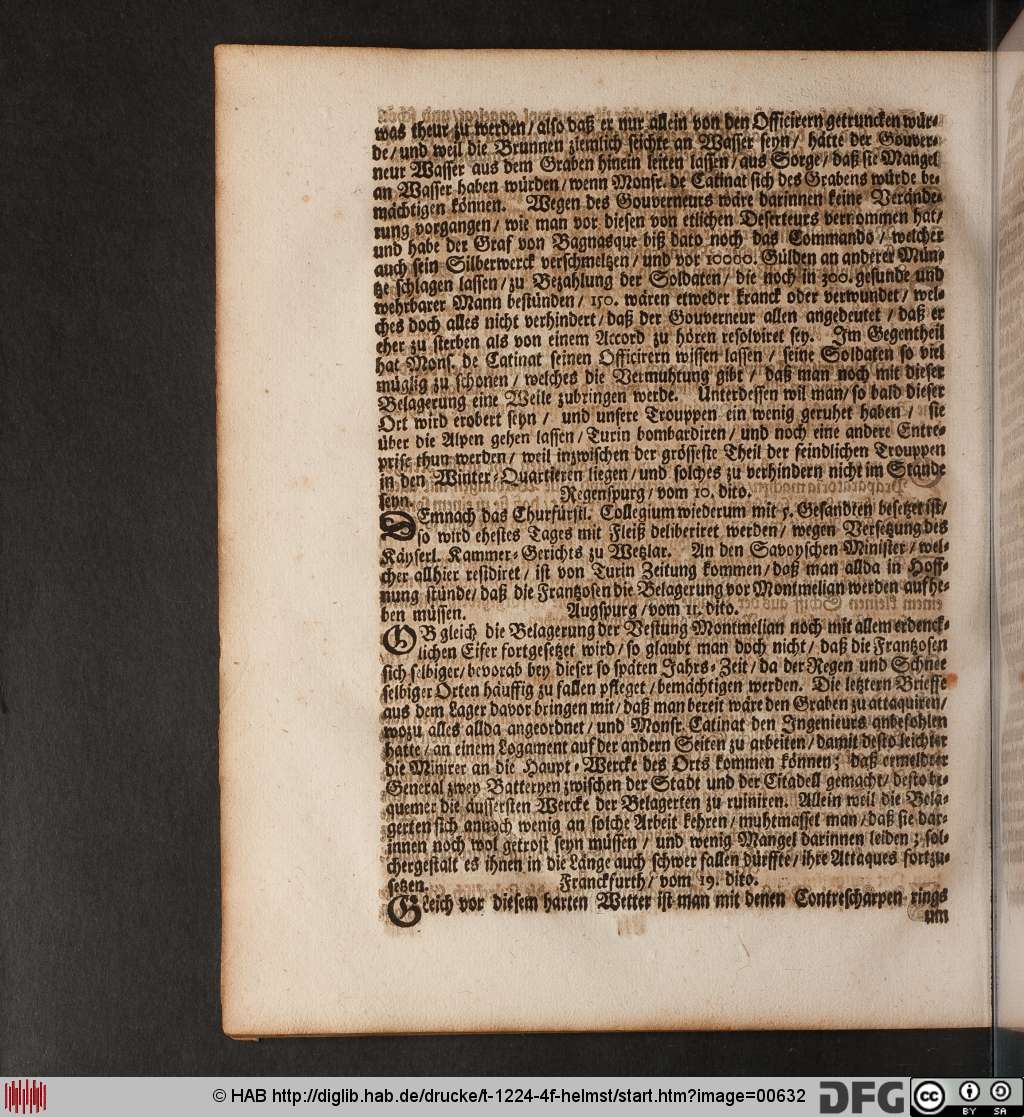 was theur zu werden / also daß er nur allein von den Officirern getruncken wür-
de / und weil die Brunnen ziemlich seichte an Wasser seyn / hätte der Gouver-
neur Wasser aus dem Graben hinein leiten lassen / aus Sorge / daß sie Mangel
an Wasser haben würden / wenn Monsr. de Catinat sich des Grabens würde be-
mächtigen können. Wegen des Gouverneurs wäre darinnen keine Verände-
rung vorgangen / wie man vor diesen von etlichen Deserteurs vernommen hat /
und habe der Graf von Bagnasque biß dato noch das Commando / welcher
auch sein Silberwerck verschmeltzen / und vor 10000. Gülden an anderer Mün-
tze schlagen lassen / zu Bezahlung der Soldaten / die noch in 300. gesunde und
wehrbarer Mann bestünden / 150. wären etweder kranck oder verwundet / wel-
ches doch alles nicht verhindert / daß der Gouverneur allen angedeutet / daß er
eher zu sterben als von einem Accord zu hören resolviret sey. Im Gegentheil
hat Mons. de Catinat seinen Officirern wissen lassen / seine Soldaten so viel
müglig zu schonen / welches die Vermuhtung gibt / daß man noch mit dieser
Belagerung eine Weile zubringen werde. Unterdessen wil man / so bald dieser
Ort wird erobert seyn / und unsere Trouppen ein wenig geruhet haben / sie
über die Alpen gehen lassen / Turin bombardiren / und noch eine andere Entre-
prise thun werden / weil inzwischen der grösseste Theil der feindlichen Trouppen
in den Winter-Quartieren liegen / und solches zu verhindern nicht im Stande
seyn. Regenspurg / vom 10. dito.
DEmnach das Churfürstl. Collegium wiederum mit 5. Gesandten besetzet ist /
so wird ehestes Tages mit Fleiß deliberiret werden / wegen Versetzung des
Käyserl. Kammer-Gerichts zu Wetzlar. An den Savoyschen Minister / wel-
cher allhier residiret / ist von Turin Zeitung kommen / daß man allda in Hoff-
nung stünde / daß die Frantzosen die Belagerung vor Montmelian werden aufhe-
ben müssen. Augspurg / vom 11. dito.
OB gleich die Belagerung der Vestung Montmelian noch mit allem erdenck-
lichen Eifer fortgesetzet wird / so glaubt man doch nicht / daß die Frantzosen
sich selbiger / bevorab bey dieser so späten Jahrs-Zeit / da der Regen und Schnee
selbiger Orten häuffig zu fallen pfleget / bemächtigen werden. Die letztern Brieffe
aus dem Lager davor bringen mit / daß man bereit wäre den Graben zu attaquiren /
wozu alles allda angeordnet / und Monsr. Catinat den Ingenieurs anbefohlen
hatte / an einem Logament auf der andern Seiten zu arbeiten / damit desto leichter
die Minirer an die Haupt-Wercke des Orts kommen können; daß ermeldter
General zwey Batteryen zwischen der Stadt und der Citadell gemacht / desto be-
quemer die äussersten Wercke der Belagerten zu ruiniren. Allein weil die Bela-
gerten sich annoch wenig an solche Arbeit kehren / muhtmasset man / daß sie dar-
innen noch wol getrost seyn müssen / und wenig Mangel darinnen leiden; sol-
chergestalt es ihnen in die Länge auch schwer fallen dürffte / ihre Attaques fortzu-
setzen. Franckfurth / vom 19. dito.
Gleich vor diesem harten Wetter ist man mit denen Contrescharpen rings
um
© HAB http://diglib.hab.de/drucke/t-1224-4f-helmst/start.htm?image=00632
DFG
cc
BY SA